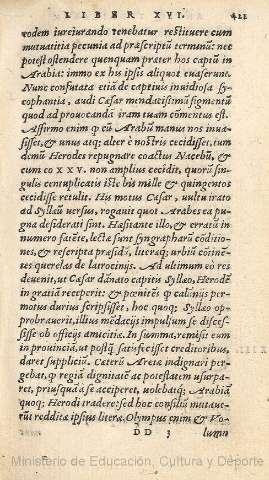 LIBER XVI. 421
eodem iureiurando tenebatur restituere cum
mutuatitia pecunia ad præscriptū terminū: nec
potest ostendere quenquam præter hos captū in
Arabia: immo ex his ipsis aliquot euaserunt.
Nunc confutata etiā de captiuis inuidiosa sy-
cophantia, audi Cæsar mendacissimū figmentū
quod ad prouocandā iram tuam cōmentus est.
Affirmo enim cū Arabū manus nos inua-
sisset, & unus atq; alter è nostris cecidisset, tum
demū Herodes repugnare coactus Nacebū, &
cum eo XXV. non amplius cecidit, quorū sin-
gulis centuplicatis iste bis mille & quingentos
cecidisse retulit. His motus Cæsar, uultu irato
ad Syllæū uersus, rogauit quot Arabes ea pu-
gna desiderati sint. Hæsitante illo, & erratū in
numero fatēte, lectæ sunt syngrapharū cōditio-
nes, & rescripta præsidū, literæq; urbiū contine-
tes querelas de latrocinijs. Ad ultimum eò res
deuenit, ut Cæsar dānato capitis Syllæo, Herodē
in gratiā receperit: & pœnitēs calūnijs per-
motus durius scripsisset, hoc quoq; Syllæo op-
probrauerit, illius mendacijs impulsum se disces-
sisse ab officijs amicitiæ. In summa, remisit eum
in prouinciā, ut postq̄ satisfecisset creditoribus,
daret supplicium. Cæterū Aretæ indignari per-
gebat, regiā dignitatē ac potestatem usurpa-
ret, priusquā à se acciperet, uolebatq; Arabiā
quoq; Herodi tradere: sed hoc consiliū mutaue-
rūt redditæ ipsius literæ. Olympus enim & Vo-
DD 1 lumn
Ministerio de Educación, Cultura y Deporte